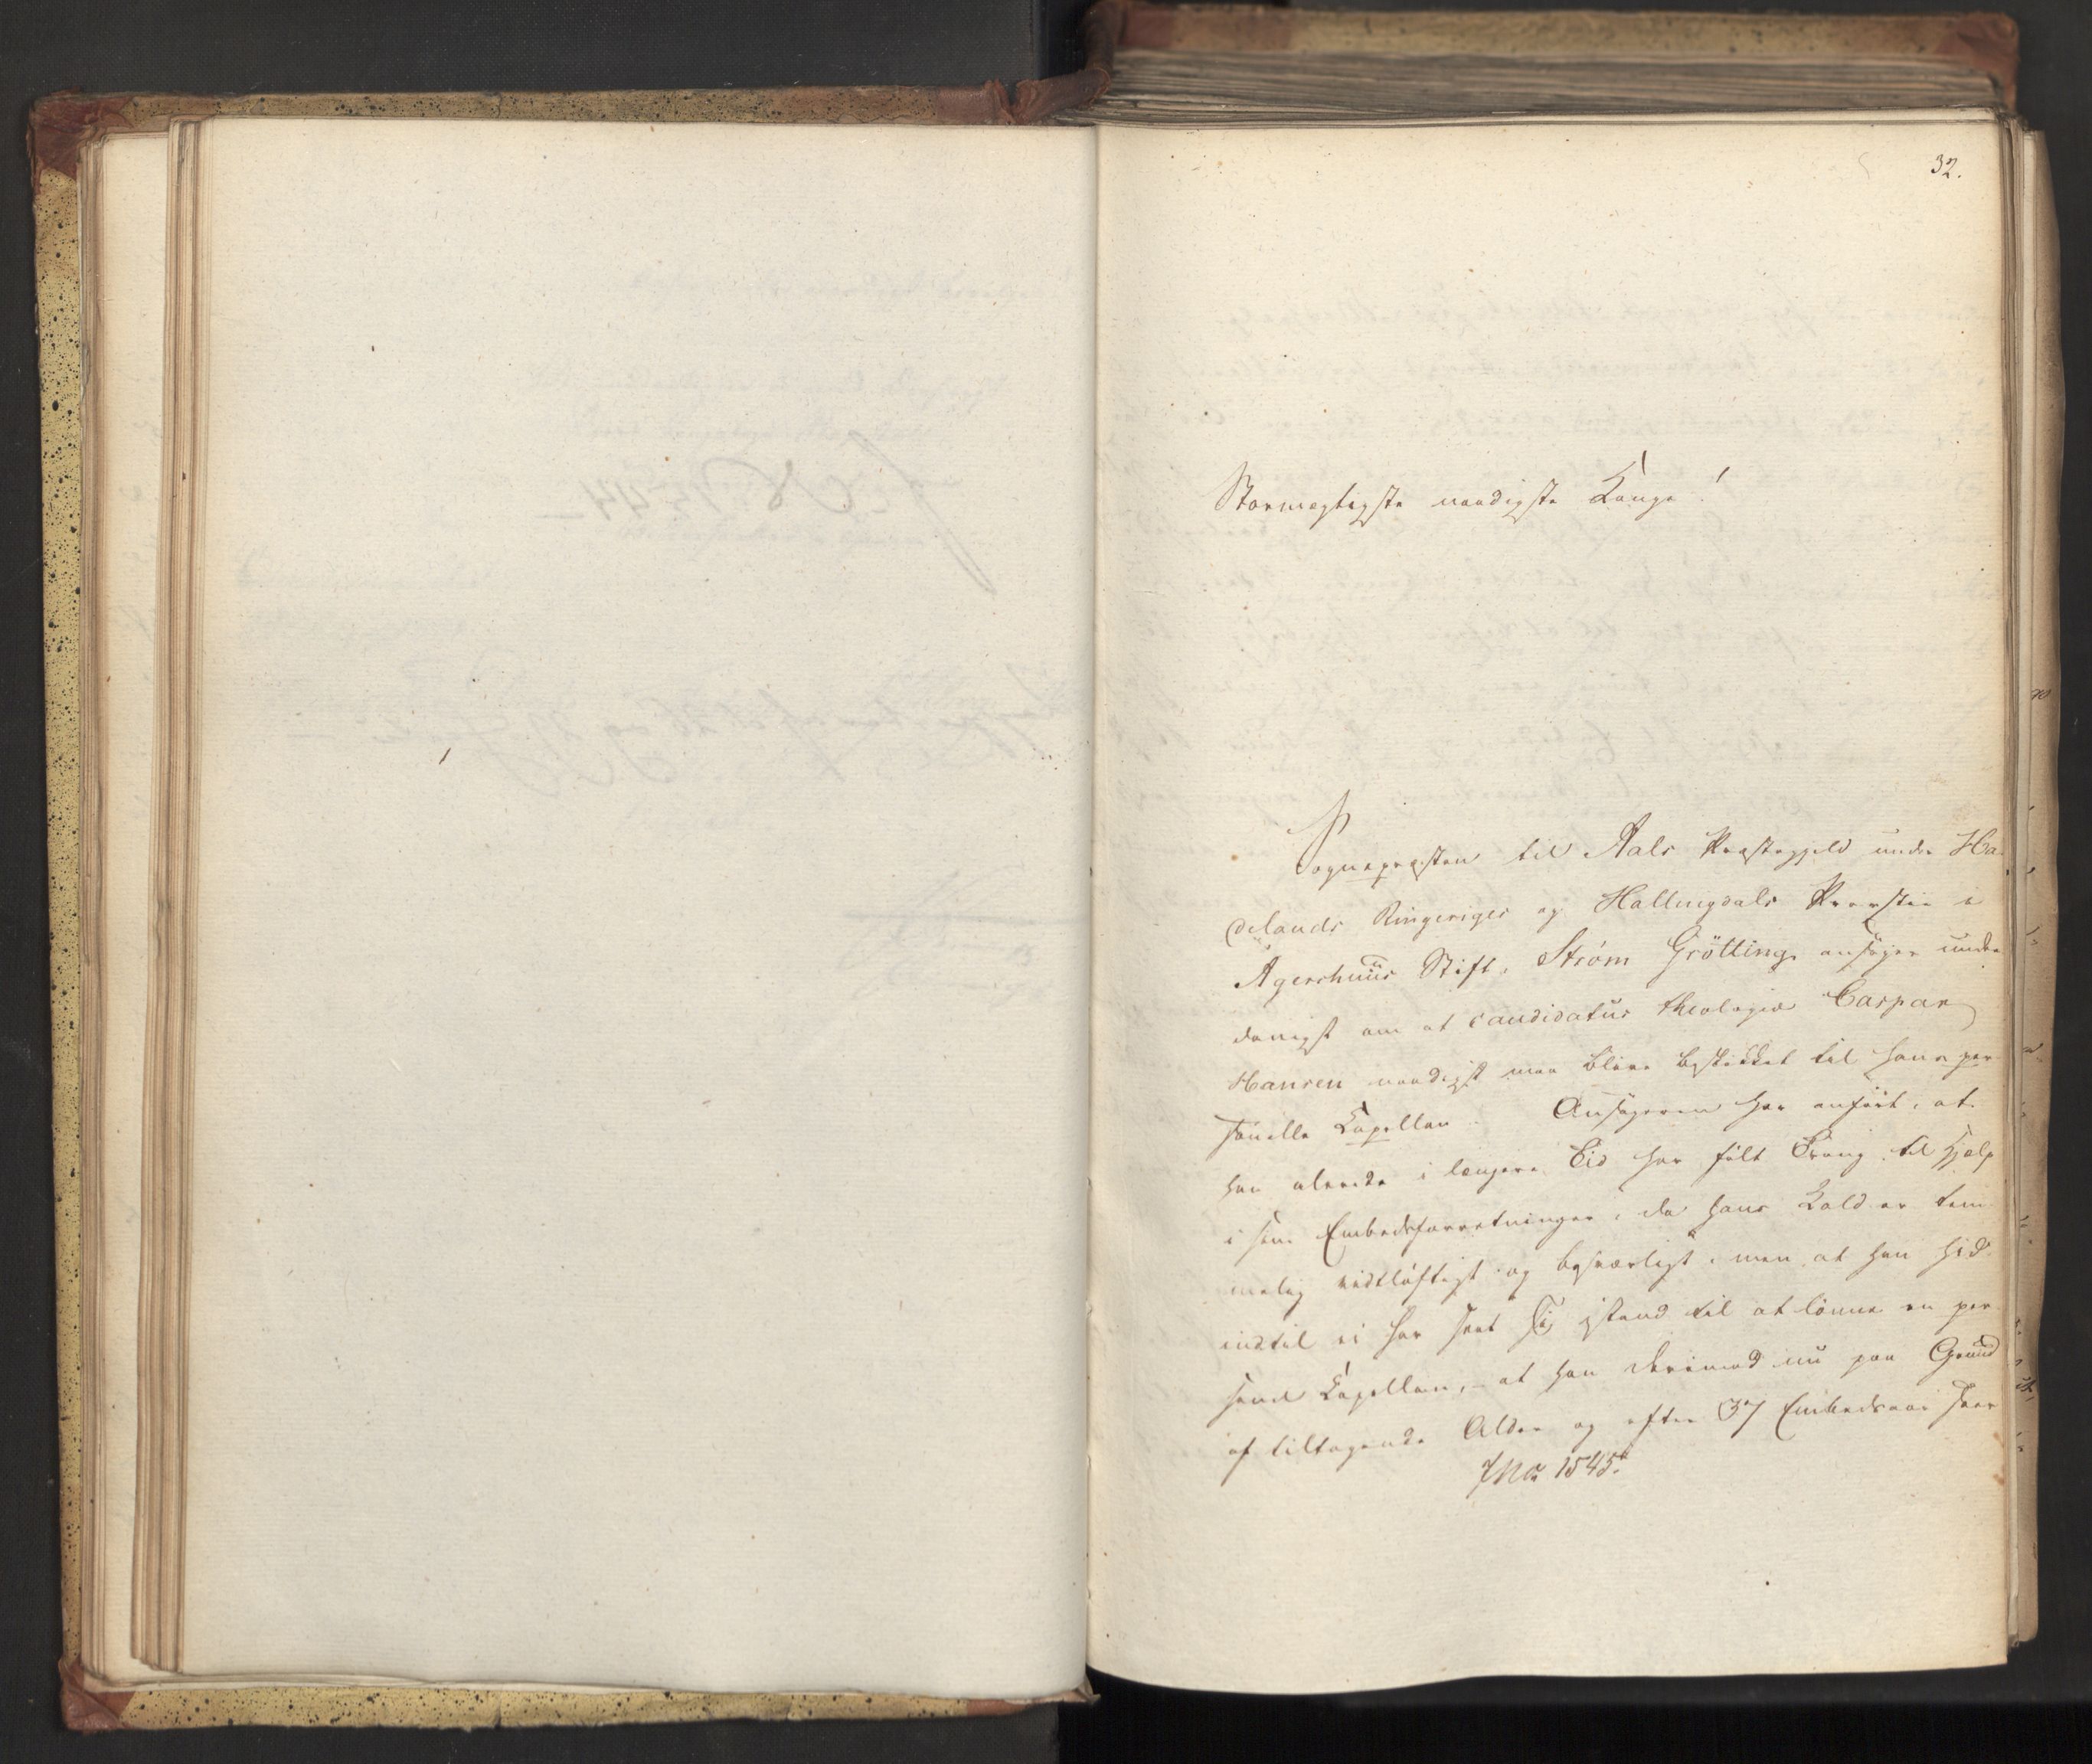 32.
Stormægtigste naadigste Konge!
Sognepræsten til Aals Præstegjeld under Ha
delands Ringeriges og Hallingdals Provstie i
Agershuus Stift, Strøm Grötting, ansøger under
danigst om at candidatus theologiæ Caspar
Hansen naadigst maa blive beskikket til hans per
sonelle Kapellan. Ansøgeren har anført, at
han alerede i længere Tid har følt Trang til Hjælp
i sine Embedsforretninger, da hans Kald er tem
melig vidtløftigt og besværligt, men at han hid
indtil ei har seet sig istand til at lønne en per
sonel Kapellan, - at han derimod nu paa Grund
af tiltagende Alder og efter 37 Embedsaar seer
JNo 1545.